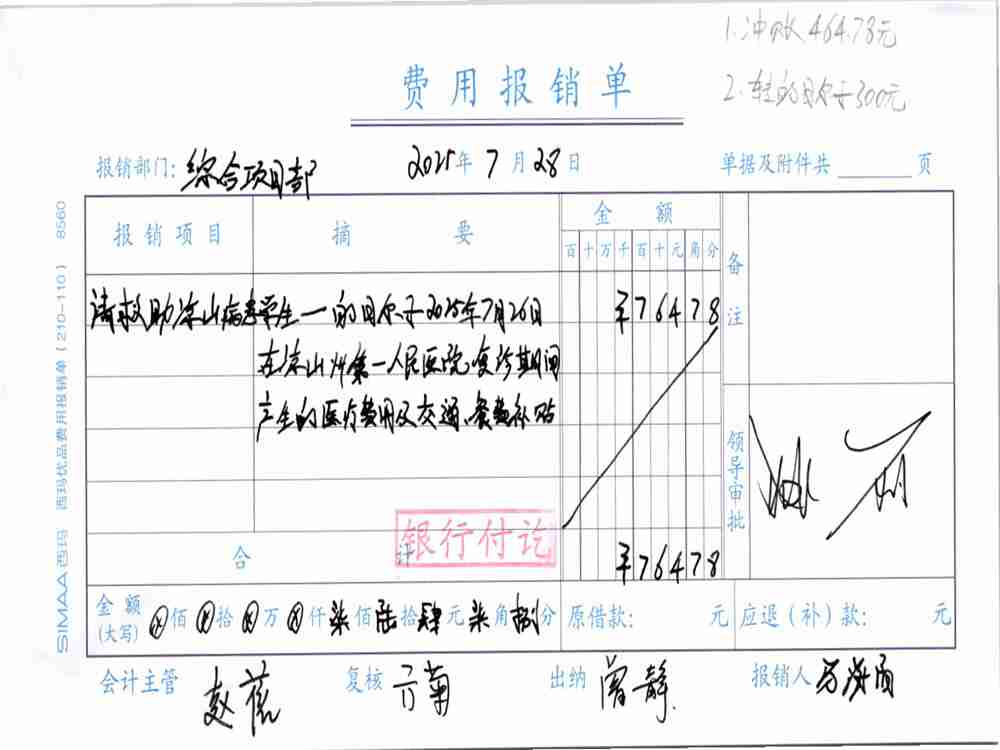 1.冲账464.78元
费用报销单
2.转的日尔子300元
报销部门：综合项目部 2025年7月28日 单据及附件共 页
报销项目 摘要 金额 备注
百十万千百十元角分
请救助凉山病患学生一的日尔子2025年7月26日 ¥76478
在凉山州第一人民医院复诊期间
产生的医疗费用及交通、餐费补贴
领导审批
银行付讫
合计 ¥76478
金额(大写) ⊗佰⊗拾⊗万⊗仟柒佰陆拾肆元柒角捌分 原借款： 元 应退（补）款： 元
会计主管 复核 出纳 曾静 报销人
SIMAA西玛 西玛优品费用报销单（210-110） 8560